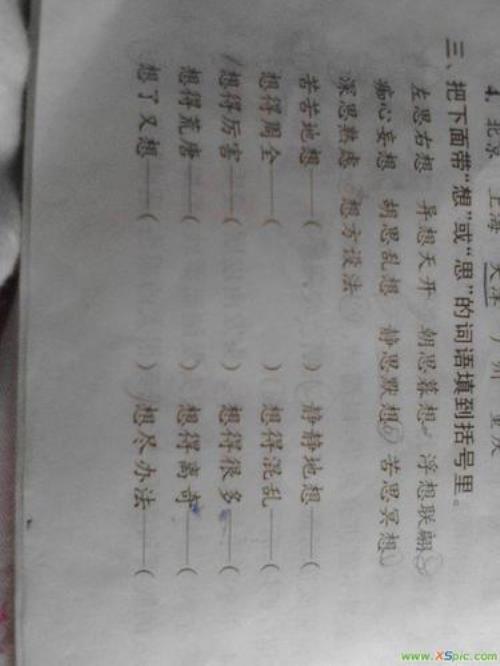 4. 北京 上海 天津 广州 重庆
三、把下面带“想”或“思”的词语填到括号里。
左思右想 异想天开 朝思暮想 浮想联翩
痴心妄想 胡思乱想 静思默想 苦思冥想
深思熟虑 想方设法
苦苦地想——( ) 静静地想——(
想得周全——( ) 想得混乱——(
想得厉害——( ) 想得很多——(
想得荒唐——( ) 想得离奇——(
想了又想——( ) 想尽办法——(
www.XSpic.com